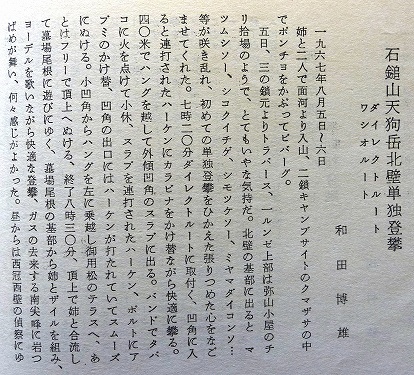 石鎚山天狗岳北壁単独登攀
ダイレクトルート
ワシオルート
和田博雄
一九六七年八月五日〜六日
姉と二人で面河より入山、二鎖キャンプサイトのクマザサの中
でポンチョをかぶってビバーグ。
五日、三の鎖元よりトラバース、一ルンゼ上部は弥山小屋のチ
リ捨場のようで、とてもいやな気持だ。北壁の基部に出ると マ
ツムシソー、シコクイチゲ、シモツケソー、ミヤマダイコンソ…
等が咲き乱れ 初めての単独登攀をひかえた張りつめた心をなご
ませてくれた。七時二〇分ダイレクトルートに取付く、凹角に入
ると連打されたハーケンにカラビナをかけ替ながら快適に攀る。
四〇米でハングを越して外傾凹角のスラブに出る。バンドでタバ
コに火を点けて小休、スラブを連打されたハーケン、ボルトにア
ブミのかけ替、凹角の出口にはハーケンが打たれていてスムーズ
にぬける。小凹角からハングを左に乗越し御用松のテラスへ、あ
とはフリーで頂上へぬける、終了八時三〇分、頂上で姉と合流し
て墓場尾根に遊びにゆく、墓場尾根の基部から姉とザイルを組み、
ヨーデルを歌いながら快適な登攀、ガスの去来する南尖峰に岩つ
ばめが舞い、何々感じがよかった。昼からは西冠西壁の偵察にゆ